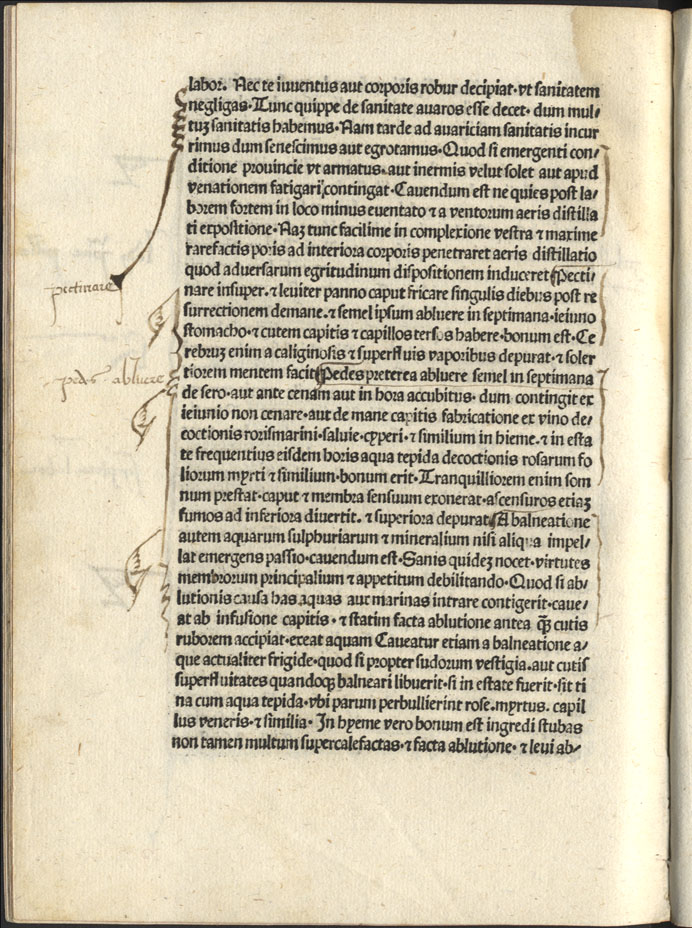 labor. Nec te iuventus aut corporis robur decipiat·vt sanitatem
negligas·Tunc quippe de sanitate avaros esse decet· dum mul-
tuꝫ sanitatis habemus·Nam tarde ad avariciam sanitatis incur
rimus dum senescimus aut egrotamus·Quod si emergenti con/
ditione provincie vt armatus·aut inermis velut solet aut apud
venationem fatigari contingat·Cavendum est ne quies post la/
borem fortem in loco minus eventato ⁊ a ventorum aeris distilla
ti expositione·Naꝫ tunc facilime in complexione vestra ⁊ maxime
rarefactis poris ad interiora corporis penetraret aeris distillatio
quod adversarum egritudinum dispositionem induceret Pecti-
pectinare
nare insuper·⁊ leviter panno caput fricare singulis diebus post re
surrectionem demane·⁊ semel ipsum abluere in septimana·ieiuno
stomacho·⁊ cutem capitis ⁊ capillos tersos habere·bonum est·Ce
rebruꝫ enim a caliginosis ⁊ superfluis vaporibus depurat·⁊ soler
tiorem mentem facit Pedes preterea abluere semel in septimana
pedes abluere
de sero·aut ante cenam aut in hora accubitus· dum contingit ex
ieiunio non cenare·aut de mane capitis fabricatione ex vino de/
coctionis rorismarini·salvie·cyperi·⁊ similium in hieme·⁊ in esta
te frequentius eisdem horis aqua tepida decoctionis rosarum fo
liorum myrti ⁊ similium·bonum erit·Tranquilliorem enim som
num prestat·caput ⁊ membra sensuum exonerat·ascensuros etiaꝫ
fumos ad inferiora divertit. ⁊ superiora depurat A balneatione
autem aquarum sulphuriarum ⁊ mineralium nisi aliqua impel/
lat emergens passio·cavendum est·Sanis quideꝫ nocet·virtutes
membrorum principalium ⁊ appetitum debilitando·Quod si ab/
lutionis causa has aquas aut marinas intrare contigerit·cave/
at ab infusione capitis·⁊ statim facta ablutione antea qꝫ cutis
ruborem accipiat·exeat aquam Caveatur etiam a balneatione a/
que actualiter frigide·quod si propter sudorum vestigia·aut cutis
superfluitates quandoqꝫ balneari libuerit·si in estate fuerit·sit ti
na cum aqua tepida·vbi parum perbullierint rose·myrtus. capil
lus veneris·⁊ similia· In hyeme vero bonum est ingredi stubas
non tamen multum supercalefactas·⁊ facta ablutione·⁊ levi ab/